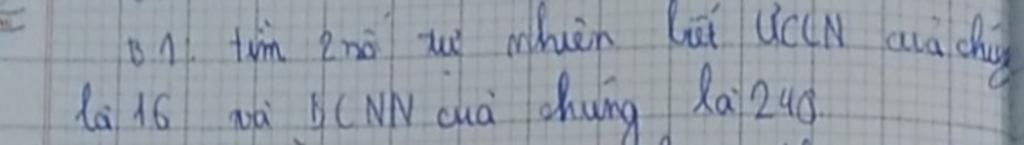 B1. tìm 2 số tự nhiên biết ƯCLN của chúng
là 16 và BCNN của chúng là 240.